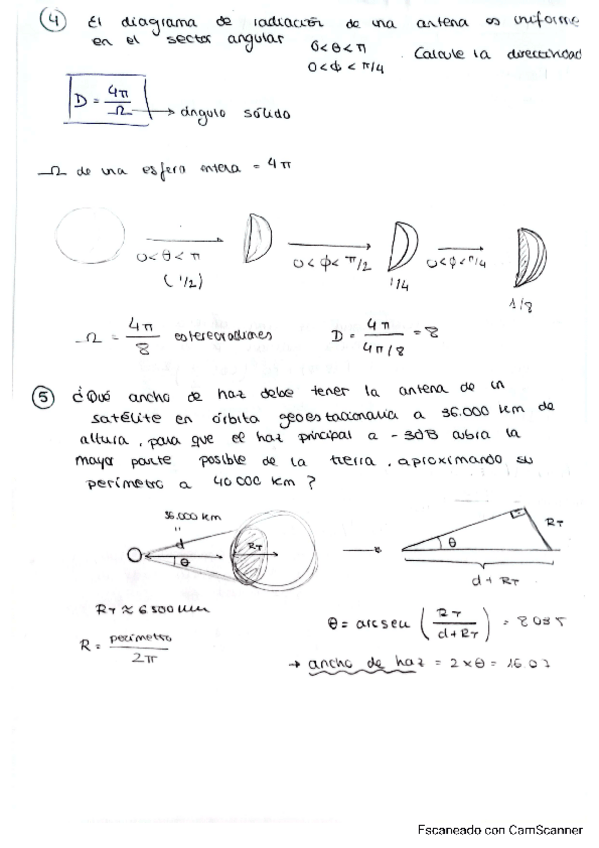 ④ El diagrama de radiación de una antena es uniforme
en el sector angular 0<θ<π . Calcule la directividad
0<ϕ<π/4
D = 4π/Ω → ángulo sólido
Ω de una esfera entera = 4π
0<θ<π 0<ϕ<π/2 0<ϕ<π/4
(1/2) 1/4 1/8
Ω = 4π/8 estereoradianes D = 4π/(4π/8) = 8
⑤ ¿Qué ancho de haz debe tener la antena de un
satélite en órbita geoestacionaria a 36.000 km de
altura, para que el haz principal a -3dB cubra la
mayor parte posible de la tierra, aproximando su
perímetro a 40000 km?
36.000 km
"
d RT RT
θ θ
d + RT
RT ≈ 6300 km θ = arcsen (RT/(d+RT)) =
R = perímetro/2π → ancho de haz = 2xθ =
Escaneado con CamScanner